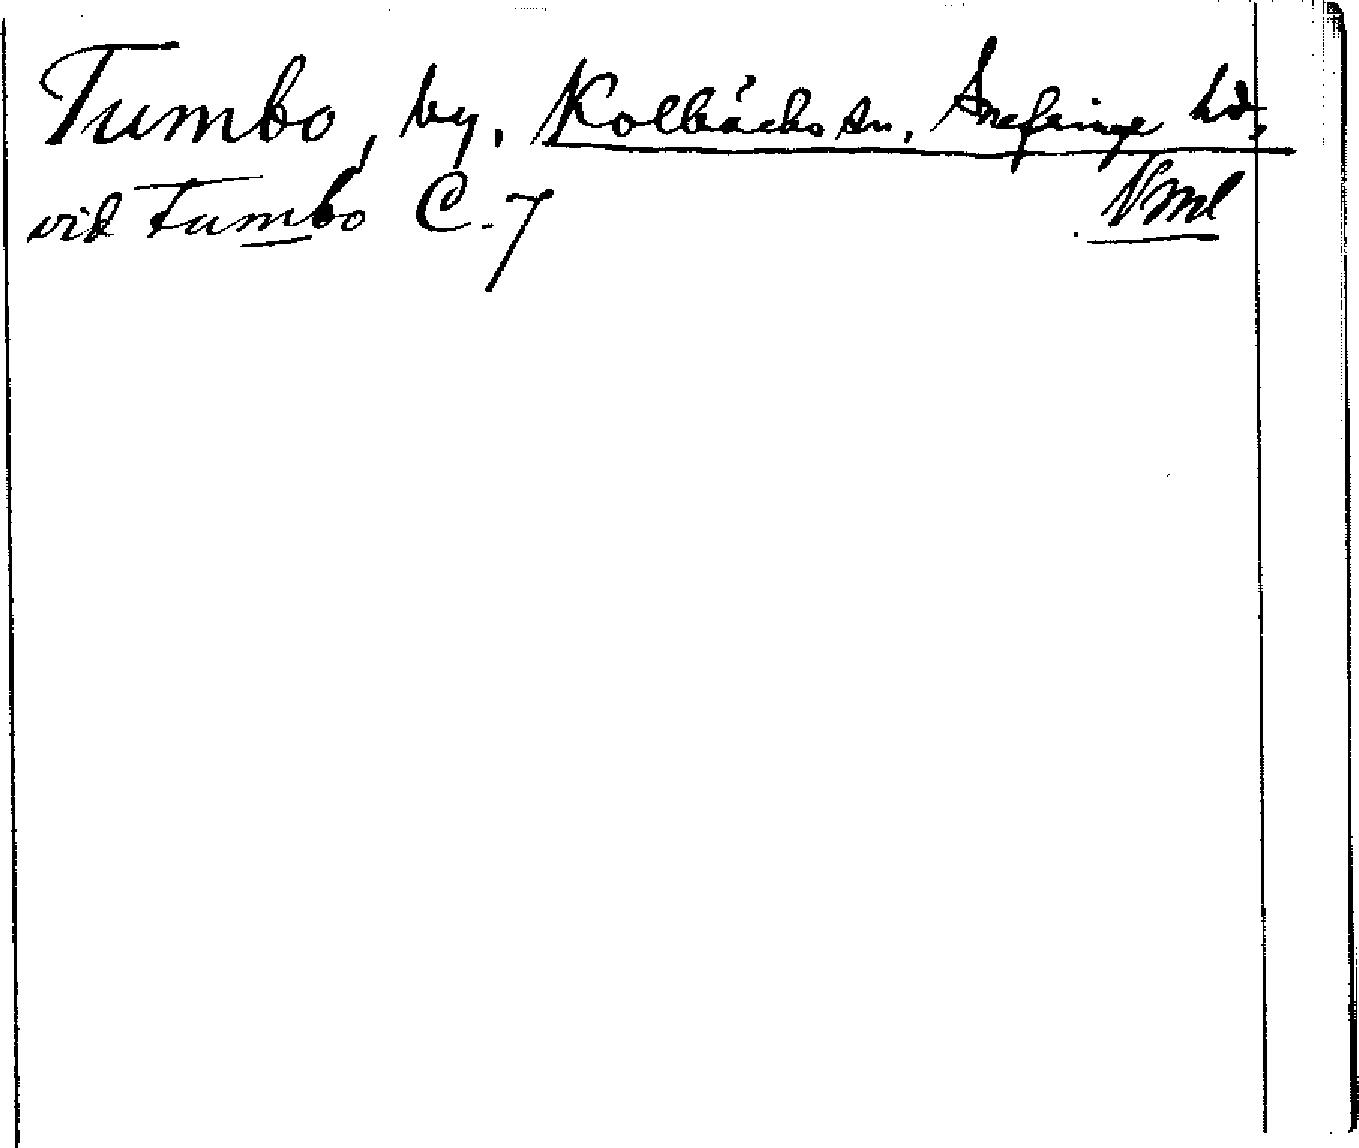 Tumbo, by, Kolbäcks sn, Snefringe hd.
vid Tumbo C. 7 Vml